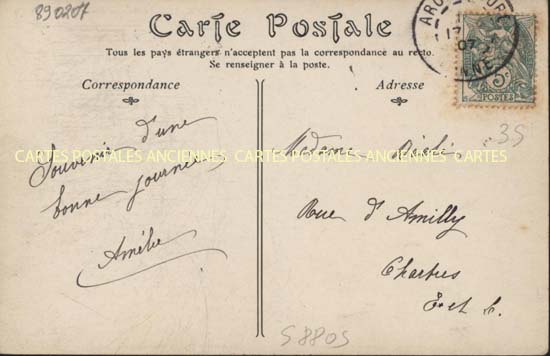 890207
Carte Postale
Tous les pays étrangers n'acceptent pas la correspondance au recto.
Se renseigner à la poste.
Correspondance
Adresse
Souvenir d'une
bonne journée
Amélie
Madame
Rue d'Amilly
Chartres
E et L.
5c
POSTES
07
35
S8805
CARTES POSTALES ANCIENNES CARTES POSTALES ANCIENNES CARTES